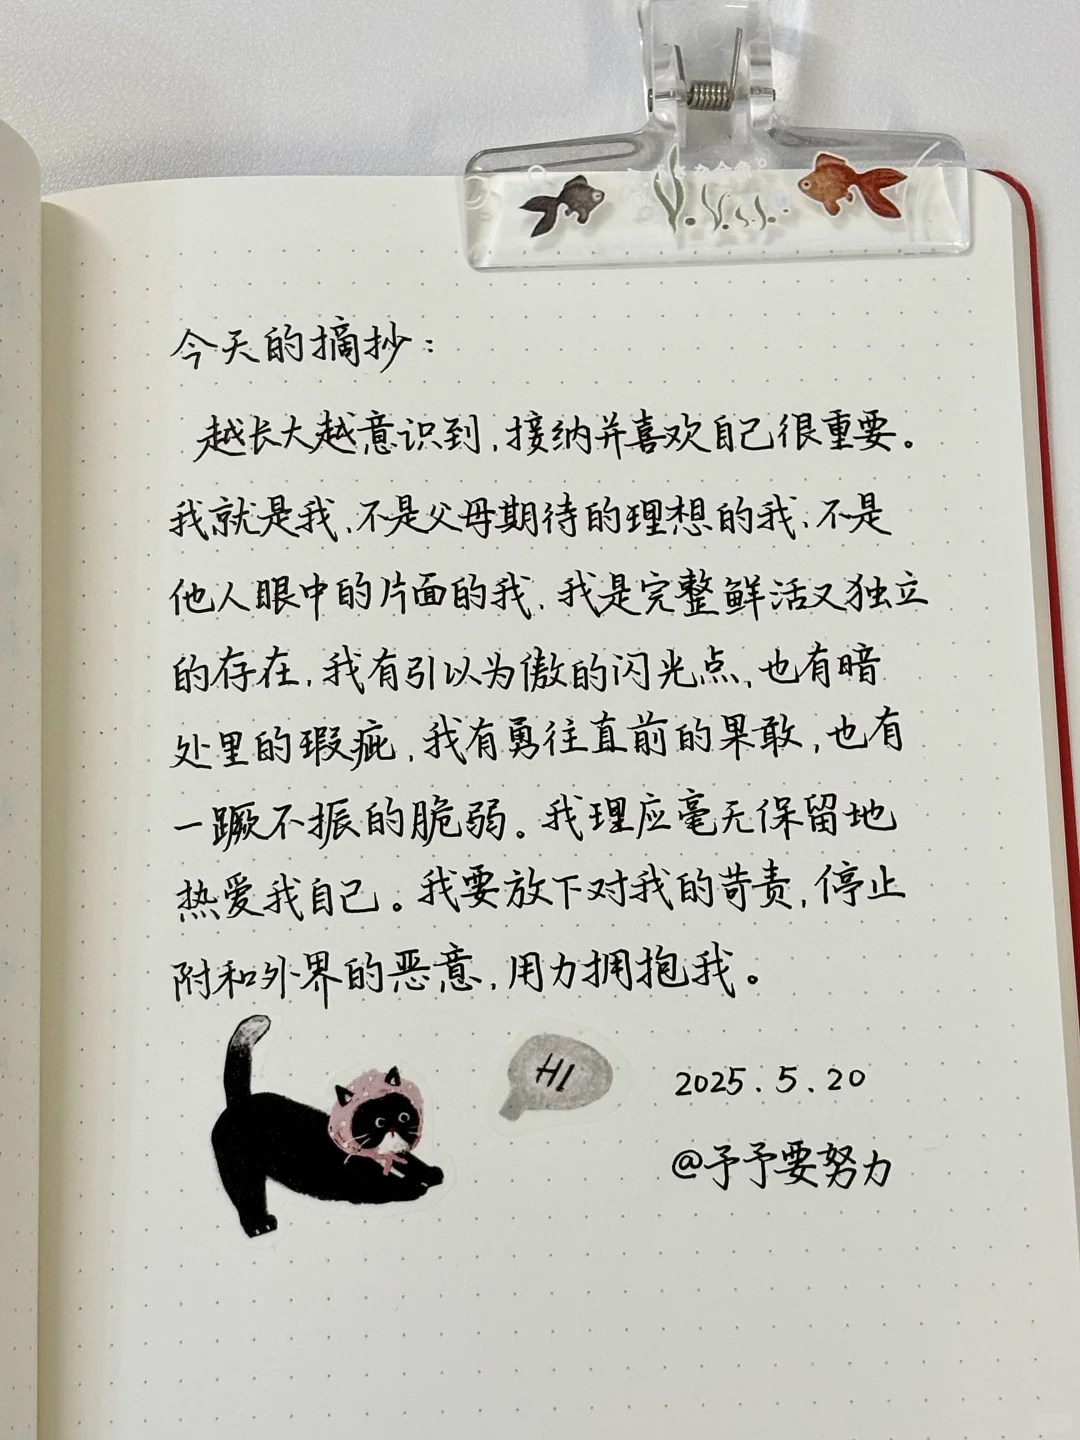 今天的摘抄：
越长大越意识到，接纳并喜欢自己很重要。
我就是我，不是父母期待的理想的我，不是
他人眼中的片面的我，我是完整鲜活又独立
的存在，我有引以为傲的闪光点，也有暗
处里的瑕疵，我有勇往直前的果敢，也有
一蹶不振的脆弱。我理应毫无保留地
热爱我自己。我要放下对我的苛责，停止
附和外界的恶意，用力拥抱我。
HI
2025.5.20
@予予要努力